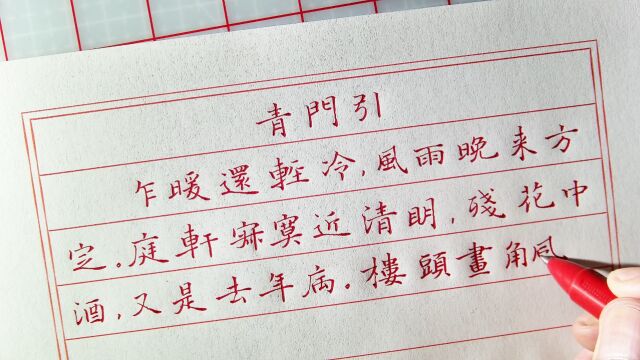 青門引
乍暖還輕冷,風雨晚来方
定。庭軒寂寞近清明,殘花中
酒,又是去年病。樓頭畫角風